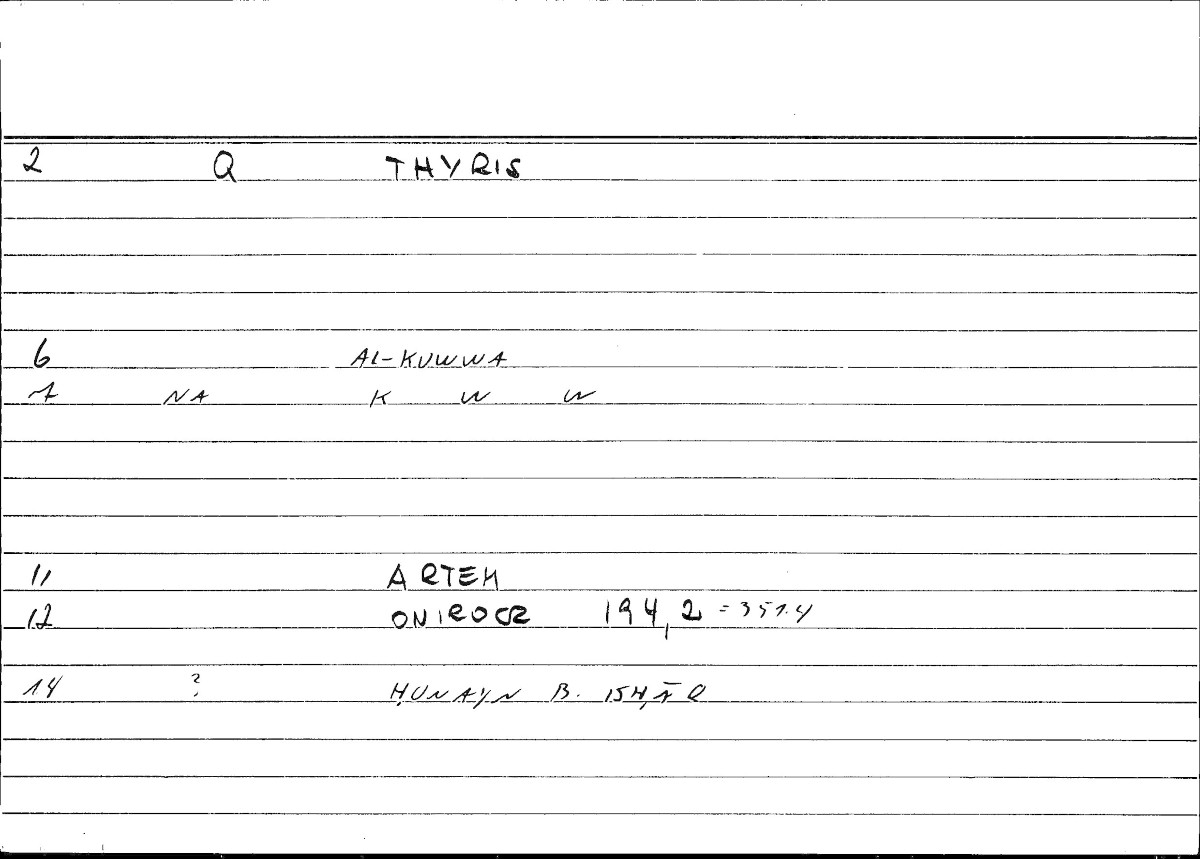 2 Q THYRIS
6 AL-KUWWA
7 NA K W W
11 ARTEM
12 ONIROCR 194,2 = 351.4
14 ? ḤUNAYN B. ISḤĀQ